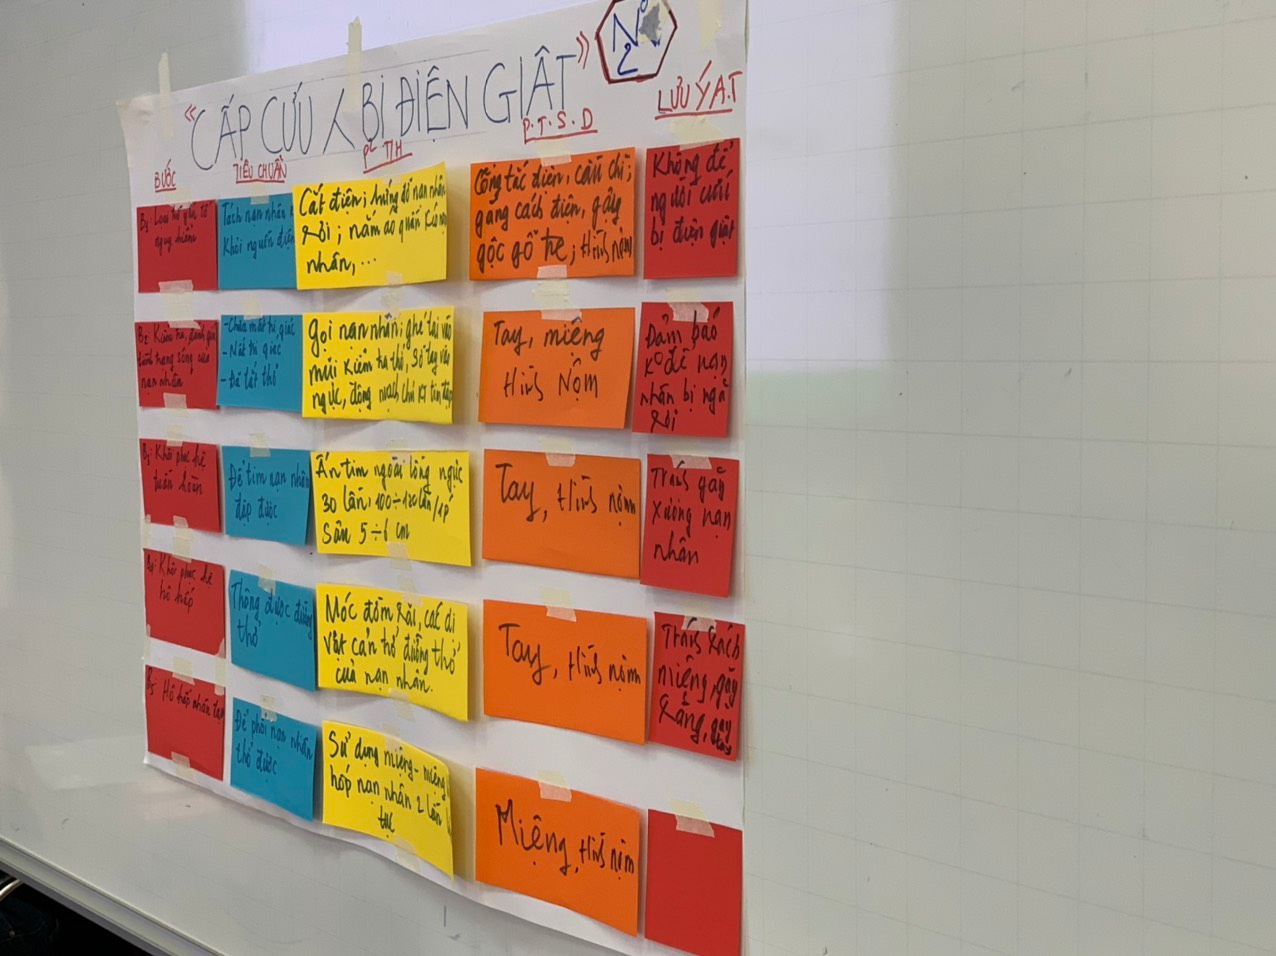 "CẤP CỨU Y BỊ ĐIỆN GIẬT"
N°
2
BƯỚC
TIÊU CHUẨN
P² TH
P.T.S.D
LƯU Ý A.T
B1: Loại
nguy hiểm
Tách nạn nhân
Khỏi nguồn điện
Cắt điện; hứng đỡ nạn nhân
rơi; nắm áo quần
nhân,...
Công tắc điện, cầu chì;
găng cách điện, gậy
gộc gỗ tre; Hình nộm
Không để
người cứu
bị điện giật
B2: Kiểm tra, đánh giá
tình trạng sống của
nạn nhân
- Chưa mất tri giác
- Mất tri giác
- Đã tắt thở
gọi nạn nhân; ghé tai vào
mũi kiểm tra thở, sờ tay vào
ngực, động mạch tim đập
Tay, miệng
Hình Nộm
Đảm bảo
K° để nạn
nhân bị ngã
rơi
B3: Khôi phục hệ
tuần hoàn
Để tim nạn nhân
đập được
Ấn tim ngoài lồng ngực
30 lần 100÷120 lần/1p
Sâu 5÷6 cm
Tay, Hình nộm
Tránh gãy
xương nạn
nhân
B4: Khôi phục hệ
hô hấp
Thông được đường
thở
Móc đờm rãi, các dị
vật cản trở đường thở
của nạn nhân.
Tay, Hình nộm
Tránh rách
miệng, gãy
răng,
B5: Hô hấp nhân tạo
Để phổi nạn nhân
thở được
Sử dụng miệng - miệng
nạn nhân 2 lần
tục
Miệng, Hình nộm